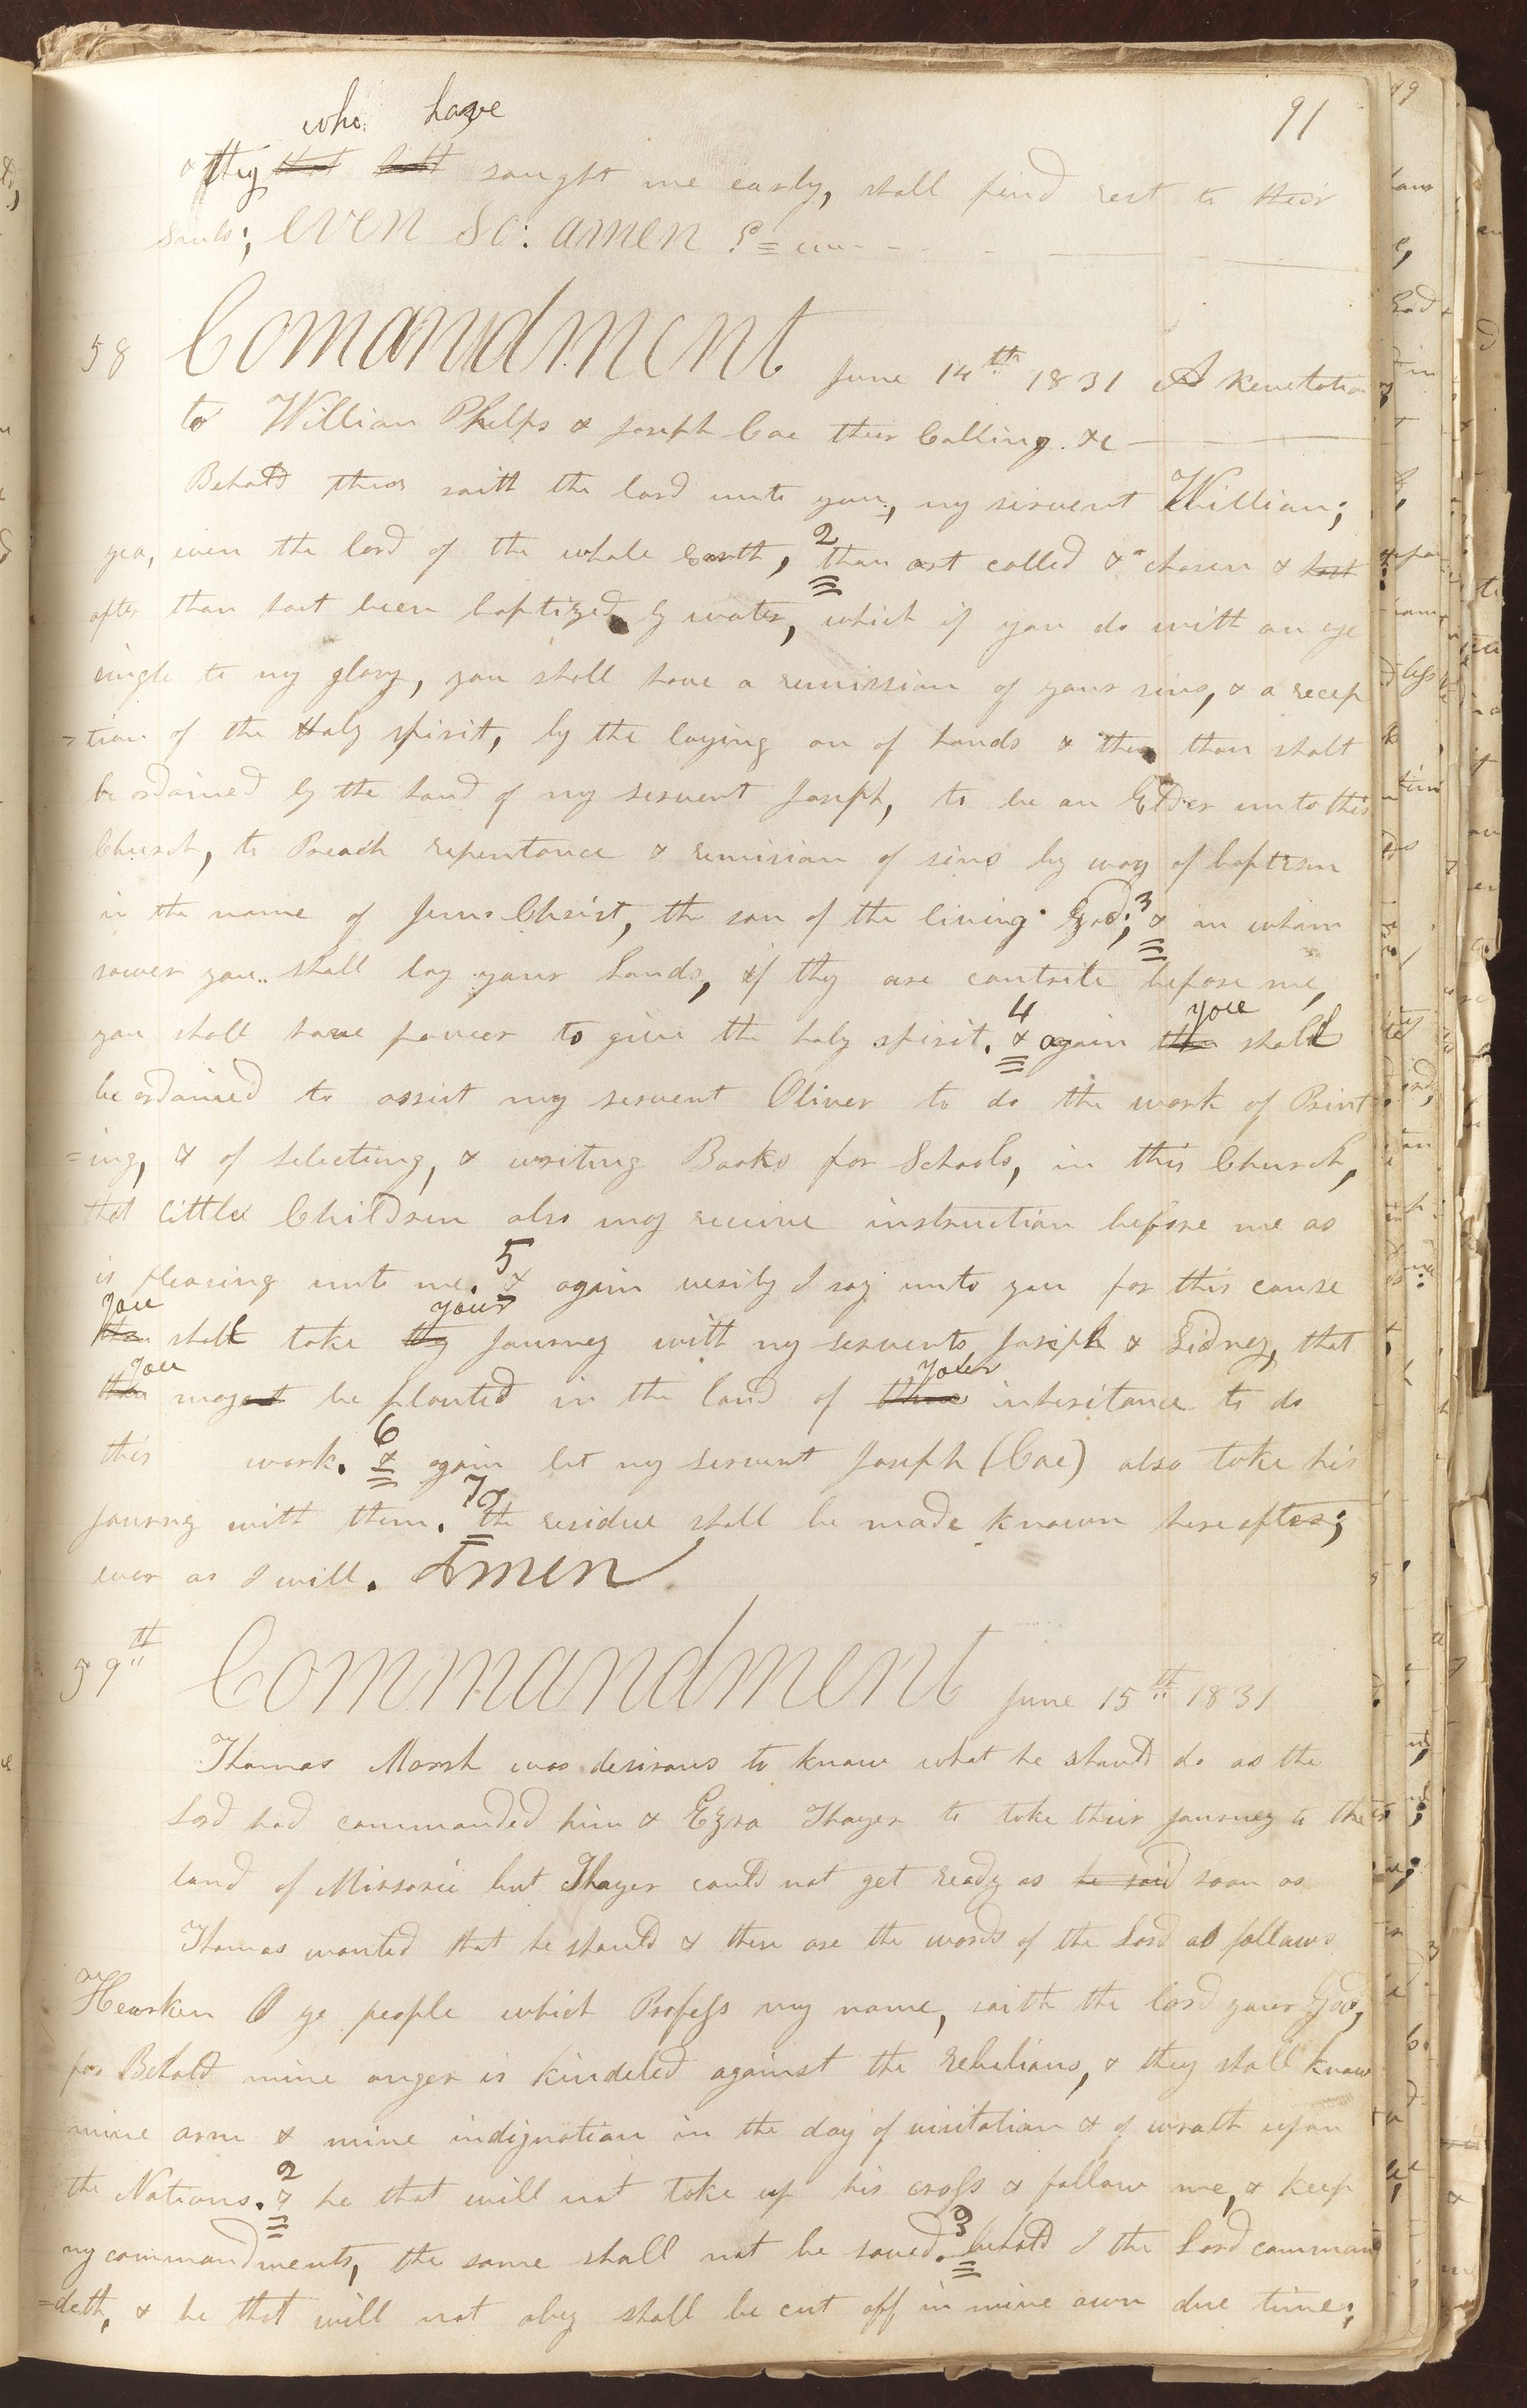 91
who have
& they that hath sought me early, shall find rest to their
souls; even so. amen
58 Comandment June 14th 1831 A Revelation
to William Phelps & Joseph Coe their Calling &c
Behold thus saith the lord unto you, my servent William;
yea, even the lord of the whole Earth, 2 thou art called & chosen & hast
after thou hast been baptized by water, which if you do with an eye
single to my glory, you shall have a remission of your sins, & a recep
=tion of the Holy spirit, by the laying on of hands & then thou shalt
be ordained by the hand of my servent Joseph, to be an Elder unto this
Church, to Preach repentance & remision of sins by way of baptism
in the name of Jesus Christ, the son of the living God; 3 & on whom
soever you shall lay your hands, if they are contrite before me,
you shall have power to give the holy spirit. 4 & again thou you shall
be ordained to assist my servent Oliver to do the work of Print
=ing, & of selecting, & writing Books for Schools, in this Church,
that little Children also may receive instruction before me as
is pleasing unto me. 5 & again verily I say unto you for this cause
thou you shall take thy your Journey with my servents Joseph & Sidney, that
thou you mayest be planted in the land of thine your inheritance to do
this work. 6 & again let my servent Joseph (Coe) also take his
Journey with them. 7 the residue shall be made known hereafter;
even as I will. Amen
59th Commandment June 15th 1831
Thomas Marsh was desirous to know what he should do as the
Lord had commanded him & Ezra Thayer to take their Journey to the
land of Missorie but Thayer could not get ready as he said soon as
Thomas wanted that he should & these are the words of the Lord as follows
Hearken O ye people which Profess my name, saith the lord your God,
for Behold mine anger is kindeled against the rebelious, & they shall know
mine arm & mine indignation in the day of visitation & of wrath upon
the Nations. 2 & he that will not take up his cross & follow me, & keep
my commandments, the same shall not be saved. 3 behold I the Lord comman
=deth, & he that will not obey shall be cut off in mine own due time;